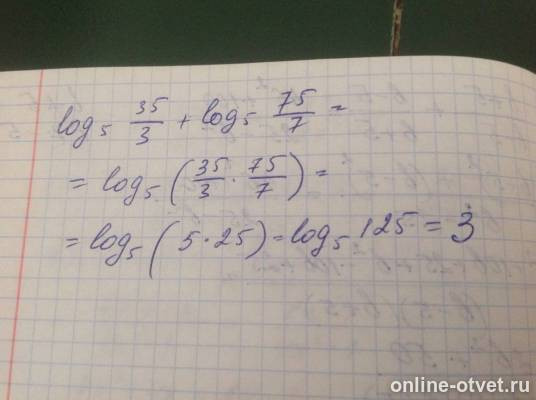 log₅ 35/3 + log₅ 75/7 =
= log₅ (35/3 · 75/7) =
= log₅ (5·25) = log₅ 125 = 3
online-otvet.ru